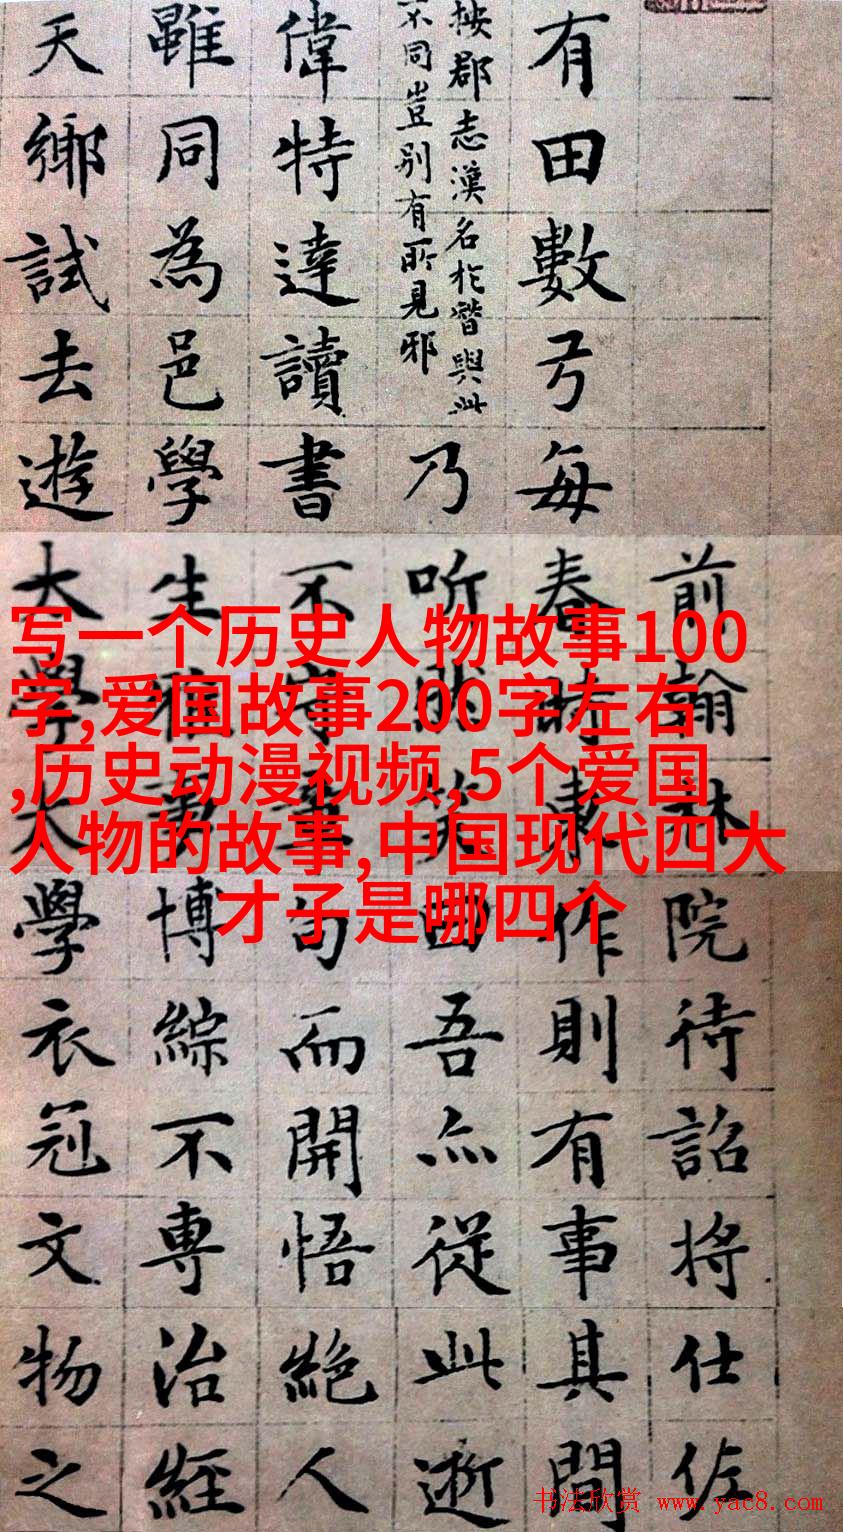 写一个历史人物故事100
字,爱国故事200字左右
,历史动漫视频,5个爱国
人物的故事,中国现代四大
才子是哪四个
前翰林院待詔将仕佐
有田數亏每春時東作則有事其間
按郡志漢名於晉與此
不同豈别有所見邪
乃听然笑曰吾亦從此逝
偉特達讀書不肯章句而開悟絕人
雖同為邑學生雅博綜不専治經
天鄉試去遊大學大學衣冠文物之
书法欣赏 www.yac8.com